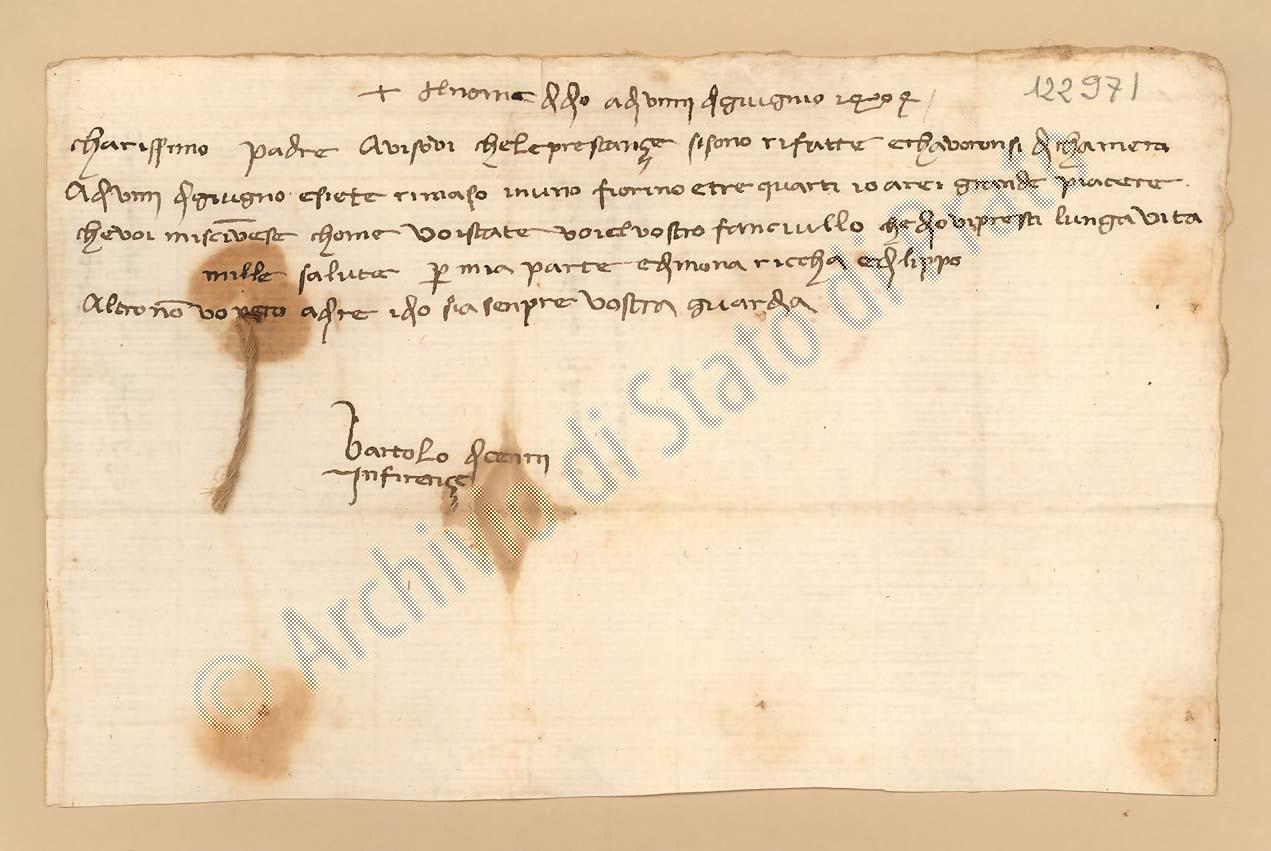 + Al nome d dio a dì viiii di giugnio 1404
122971
charissimo padre Avisovi chele prestançe sisono rifatte e chavoronsi di chamera
A dì viiii di giugno esiete rimaso inuno fiorino etre quarti io arei grande piacere
chevoi miscrivese chome voistate voi elvostro fanciullo che dio vipresti lunga vita
mille salute per mia parte e di mona riccha e di lippo
Altro nō vo a dire idio sia senpre vostra guardia
bartolo di cenni
Infirençe
© Archivio di Stato di Prato